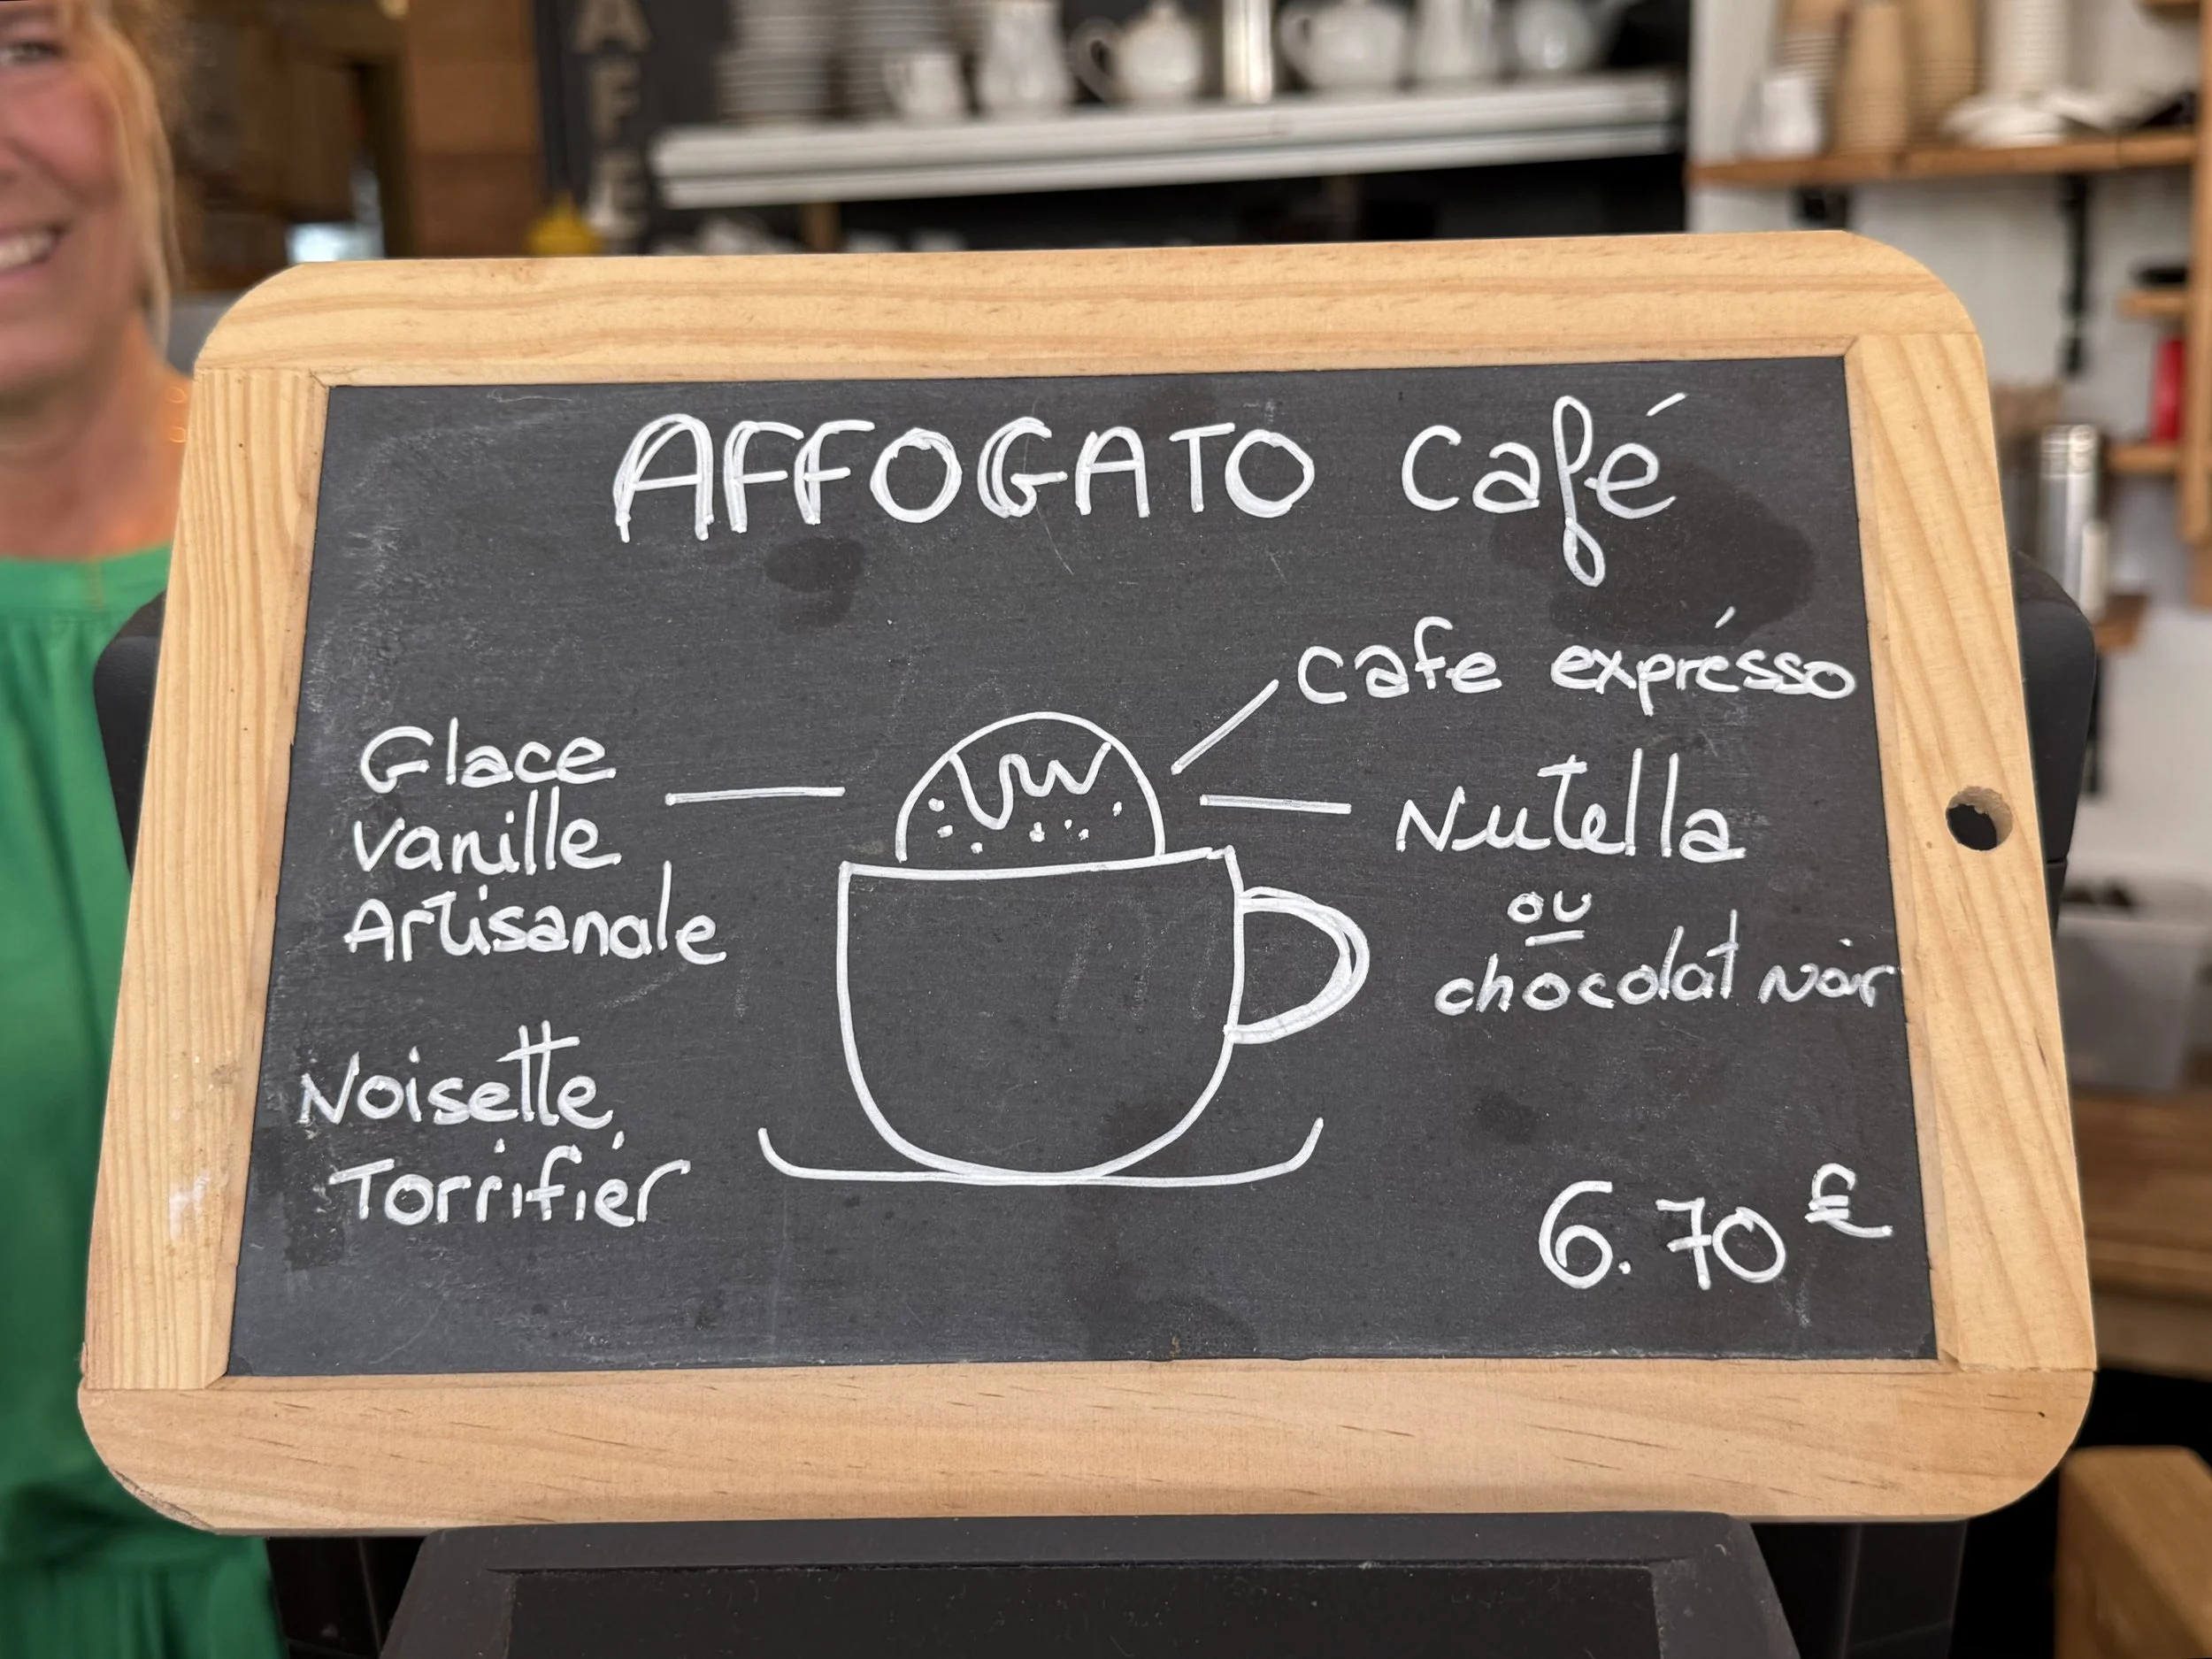 AFÉ
AFFOGATO Café
Glace
Vanille
Artisanale
Noisette
Torrifiér
Cafe exprésso
Nutella
ou
chocolat noir
6.70 €